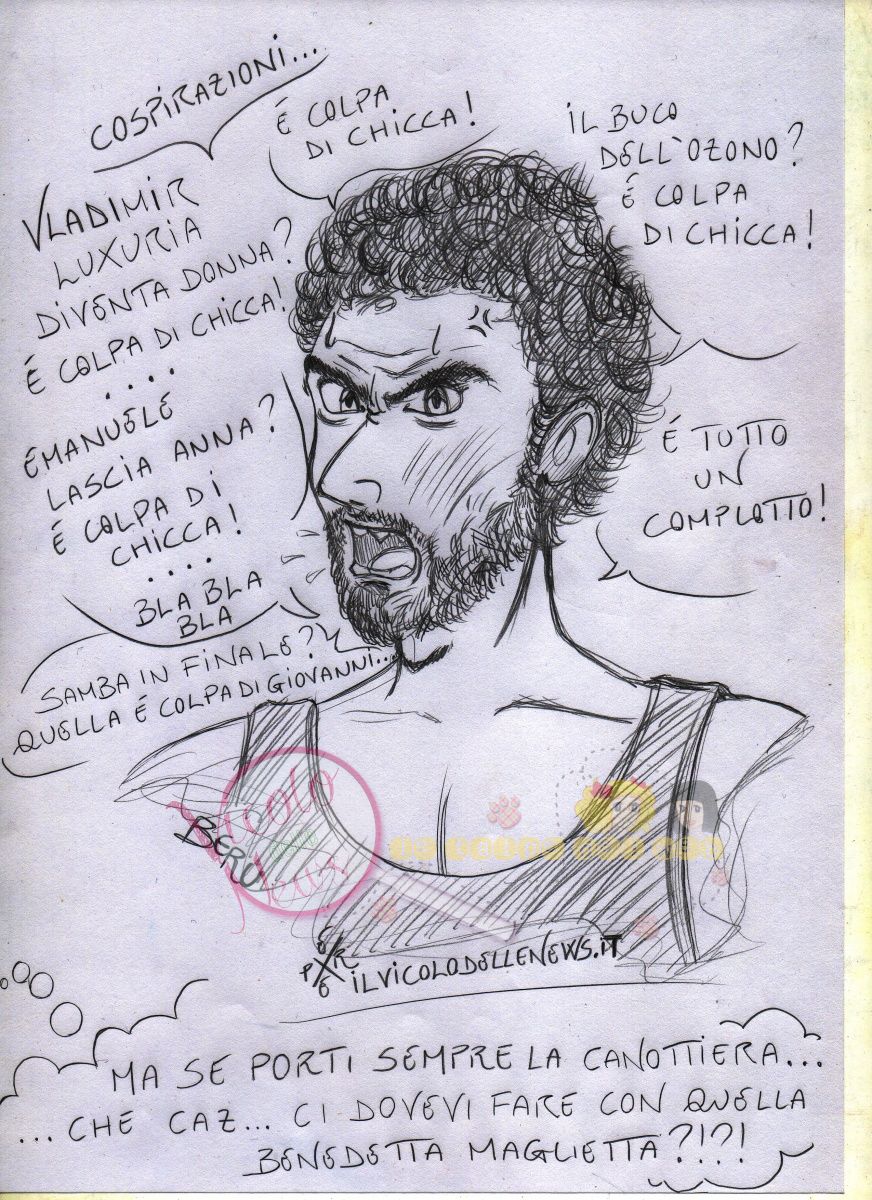 COSPIRAZIONI...
É COLPA
DI CHICCA!
IL BUCO
DELL'OZONO?
É COLPA
DI CHICCA!
VLADIMIR
LUXURIA
DIVENTA DONNA?
É COLPA DI CHICCA!
....
EMANUELE
LASCIA ANNA?
É COLPA DI
CHICCA!
....
BLA BLA
BLA
É TUTTO
UN
COMPLOTTO!
SAMBA IN FINALE?
QUELLA É COLPA DI GIOVANNI...
Vicolo
delle
News
BERU
PER
ILVICOLODELLENEWS.IT
MA SE PORTI SEMPRE LA CANOTTIERA...
...CHE CAZ... CI DOVEVI FARE CON QUELLA
BENEDETTA MAGLIETTA?!?!